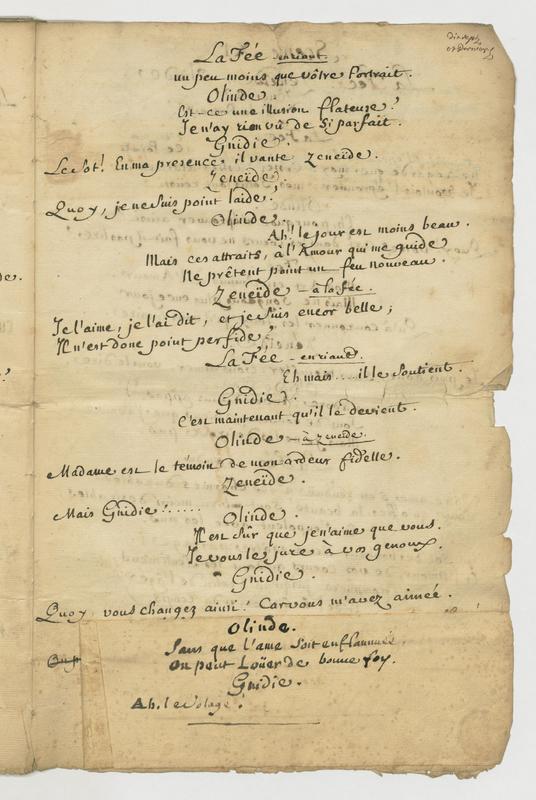 La Fée en riant.
un peu moins que vôtre Portrait.
Olinde.
Est-ce une illusion flateuse?
Je n'ay rien vû de si parfait.
Gnidie.
Le Sot! En ma presence, il vante Zeneïde.
Zeneïde.
Quoy, je ne suis point laide!
Olinde.
Ah! le jour est moins beau.
Mais ces attraits, à l'Amour qui me guide
Ne prêtent point un feu nouveau.
Zeneïde - à la fée.
Je l'aime, je l'ai dit, et je suis encor belle;
Il n'est donc point perfide?
La Fée - en riant.
Eh mais .... il le soutient.
Gnidie.
C'est maintenant qu'il le devient.
Olinde - à Zeneïde.
Madame est le témoin de mon ardeur fidelle.
Zeneïde.
Mais Gnidie! .....
Olinde.
Il est sûr que je n'aime que vous.
Je vous le jure à vos genoux.
Gnidie.
Quoy, vous changez ainsi! Car vous m'avez aimée.
Olinde.
Sans que l'ame soit enflammée
On peut Loüer de bonne foy.
Gnidie.
Ah, le volage!